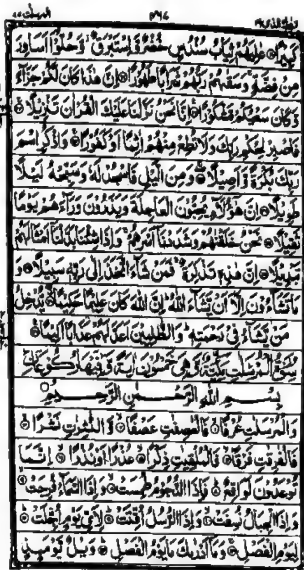 كَبِيْرًا ۝ عٰلِيَهُمْ ثِيَابُ سُنْدُسٍ خُضْرٌ وَّاِسْتَبْرَقٌ وَّحُلُّوْٓا اَسَاوِرَ
مِنْ فِضَّةٍ وَسَقٰىهُمْ رَبُّهُمْ شَرَابًا طَهُوْرًا ۝ اِنَّ هٰذَا كَانَ لَكُمْ جَزَآءً
وَّكَانَ سَعْيُكُمْ مَّشْكُوْرًا ۝ اِنَّا نَحْنُ نَزَّلْنَا عَلَيْكَ الْقُرْاٰنَ تَنْزِيْلًا ۝
فَاصْبِرْ لِحُكْمِ رَبِّكَ وَلَا تُطِعْ مِنْهُمْ اٰثِمًا اَوْ كَفُوْرًا ۝ وَاذْكُرِ اسْمَ
رَبِّكَ بُكْرَةً وَّاَصِيْلًا ۝ وَمِنَ الَّيْلِ فَاسْجُدْ لَهٗ وَسَبِّحْهُ لَيْلًا
طَوِيْلًا ۝ اِنَّ هٰٓؤُلَآءِ يُحِبُّوْنَ الْعَاجِلَةَ وَيَذَرُوْنَ وَرَآءَهُمْ يَوْمًا
ثَقِيْلًا ۝ نَحْنُ خَلَقْنٰهُمْ وَشَدَدْنَآ اَسْرَهُمْ وَاِذَا شِئْنَا بَدَّلْنَآ اَمْثَالَهُمْ
تَبْدِيْلًا ۝ اِنَّ هٰذِهٖ تَذْكِرَةٌ فَمَنْ شَآءَ اتَّخَذَ اِلٰى رَبِّهٖ سَبِيْلًا ۝ وَ
مَا تَشَآءُوْنَ اِلَّآ اَنْ يَّشَآءَ اللّٰهُ اِنَّ اللّٰهَ كَانَ عَلِيْمًا حَكِيْمًا ۝ يُّدْخِلُ
مَنْ يَّشَآءُ فِيْ رَحْمَتِهٖ وَالظّٰلِمِيْنَ اَعَدَّ لَهُمْ عَذَابًا اَلِيْمًا ۝
سُوْرَةُ الْمُرْسَلٰتِ مَكِّيَّةٌ وَّهِيَ خَمْسُوْنَ اٰيَةً وَّفِيْهَا رُكُوْعَانِ
بِسْمِ اللّٰهِ الرَّحْمٰنِ الرَّحِيْمِ
وَالْمُرْسَلٰتِ عُرْفًا ۝ فَالْعٰصِفٰتِ عَصْفًا ۝ وَّالنّٰشِرٰتِ نَشْرًا ۝
فَالْفٰرِقٰتِ فَرْقًا ۝ فَالْمُلْقِيٰتِ ذِكْرًا ۝ عُذْرًا اَوْ نُذْرًا ۝ اِنَّمَا
تُوْعَدُوْنَ لَوَاقِعٌ ۝ فَاِذَا النُّجُوْمُ طُمِسَتْ ۝ وَاِذَا السَّمَآءُ فُرِجَتْ ۝
وَاِذَا الْجِبَالُ نُسِفَتْ ۝ وَاِذَا الرُّسُلُ اُقِّتَتْ ۝ لِاَيِّ يَوْمٍ اُجِّلَتْ ۝
لِيَوْمِ الْفَصْلِ ۝ وَمَآ اَدْرٰىكَ مَا يَوْمُ الْفَصْلِ ۝ وَيْلٌ يَّوْمَئِذٍ